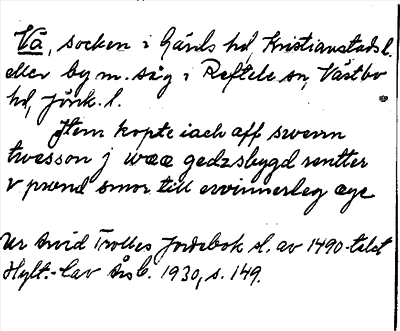 Vä, socken i Gärds hd, Kristianstads l.
eller by m. såg i Reftele sn, Västbo
hd, Jönk. l.
Item kopte iach aff swenn
twesson j wææ gedzsbygd rentter
v pund smør till ewinnerleg æge
Ur Arvid Trolles Jordebok sl. av 1490-talet
Hylt.-Cav Årsb. 1930, s. 149.